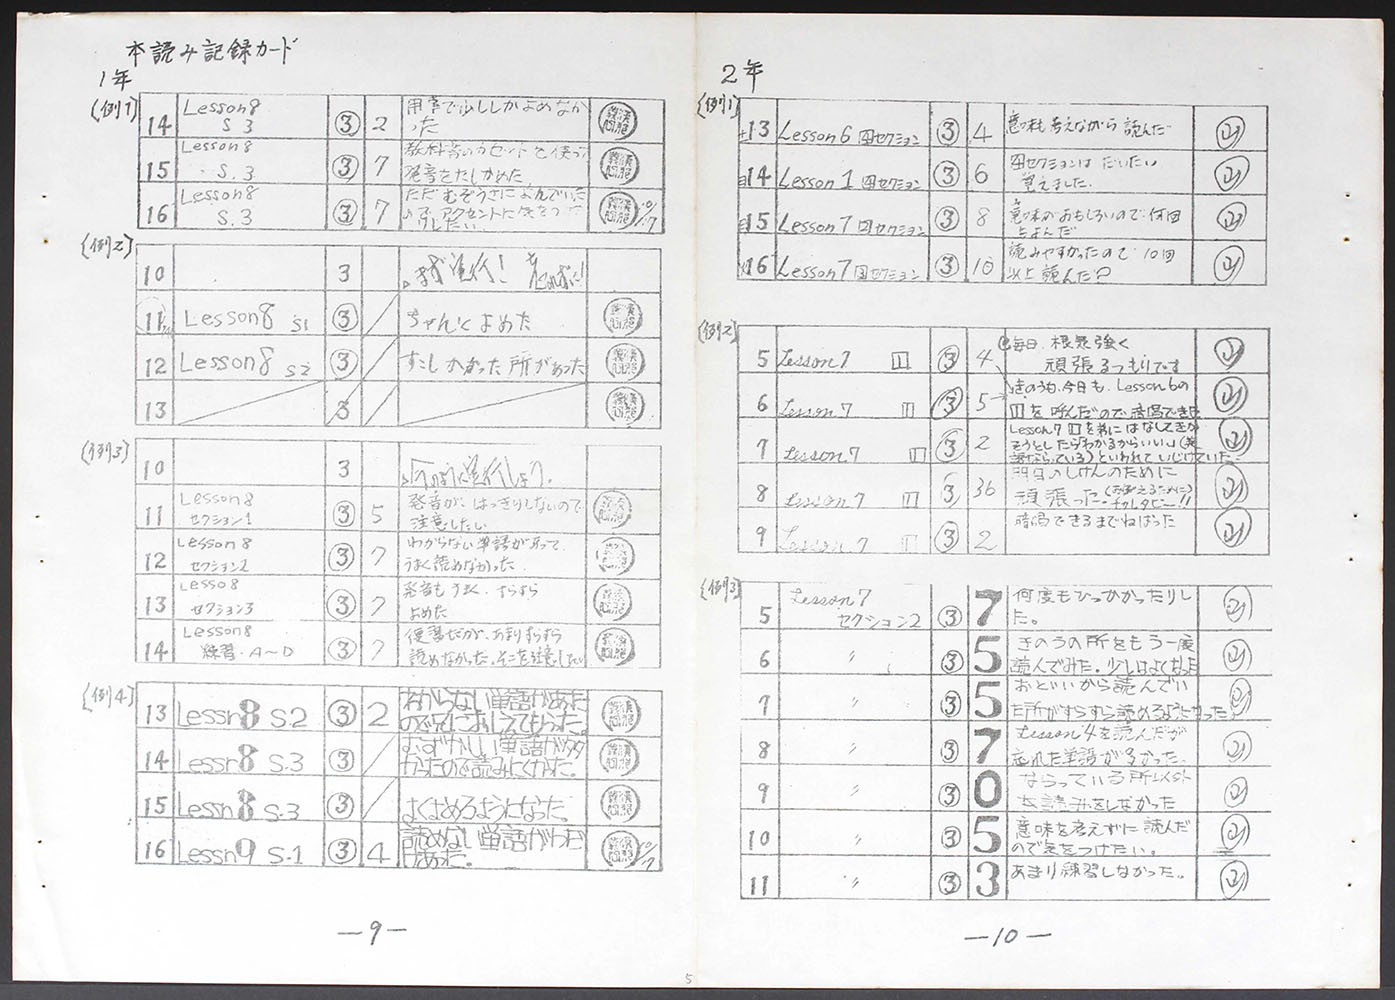 本読み記録カード
1年
(例1)
14 Lesson8 S.3 ③ 2 用事で少ししかよめなかった
15 Lesson8 S.3 ③ 7 教科書のカセットを使って発音をたしかめた
16 Lesson8 S.3 ③ 7 ただむぞうさによんでいた アクセントに気をつけ
(例2)
10 3 まず実行!
11 Lesson8 S1 ③ ちゃんとよめた
12 Lesson8 S2 ③ すこしかかった所があった
13 3
(例3)
10 3
11 Lesson8 セクション1 ③ 5 発音が、はっきりしないので注意したい
12 Lesson8 セクション2 ③ 7 わからない単語があって、うまく読めなかった。
13 Lesso8 セクション3 ③ 7 発音もうまく、すらすらよめた
14 Lesson8 練習・A〜D ③ 7 復習だが、あまりすらすら読めなかった。そこを注意したい
(例4)
13 Lessn8 S.2 ③ 2 わからない単語があったので兄におしえてもらった。
14 Lessn8 S.3 ③ むずかしい単語が多かったので読みにくかった。
15 Lessn8 S.3 ③ よくよめるようになった。
16 Lessn9 S.1 ③ 4 読めない単語が
—9—
2年
(例1)
13 Lesson6 セクション ③ 4 意味も考えながら読んだ
14 Lesson1 セクション ③ 6 セクションはだいたい覚えました。
15 Lesson7 セクション ③ 8 意味がおもしろいので何回もよんだ
16 Lesson7 セクション ③ 10 読みやすかったので10回以上読んだ?
(例2)
5 Lesson7 ③ 4 毎日、根気強く頑張るつもりです
6 Lesson7 ③ 5 きのうも、今日も、Lesson6の を呼んだので暗唱できた
7 Lesson7 ③ 2 Lesson7 を弟にはなしてきかそうとしたら「わかるからいい。」 といわれていじけていた
8 Lesson7 ③ 36 明日のしけんのために頑張った
9 Lesson7 ③ 2 暗唱できるまでねばった
(例3)
5 Lesson7 セクション2 ③ 7 何度もひっかかったりした。
6 〃 ③ 5 きのうの所をもう一度読んでみた。少しはよくなった
7 〃 ③ 5 おとといから読んでいた所がすらすら読めるようになった
8 〃 ③ 7 Lesson4を読んだが忘れた単語が多かった。
9 〃 ③ 0 ならっている所以外本読みをしなかった
10 〃 ③ 5 意味を考えずに読んだので気をつけたい。
11 〃 ③ 3 あまり練習しなかった。
—10—
5